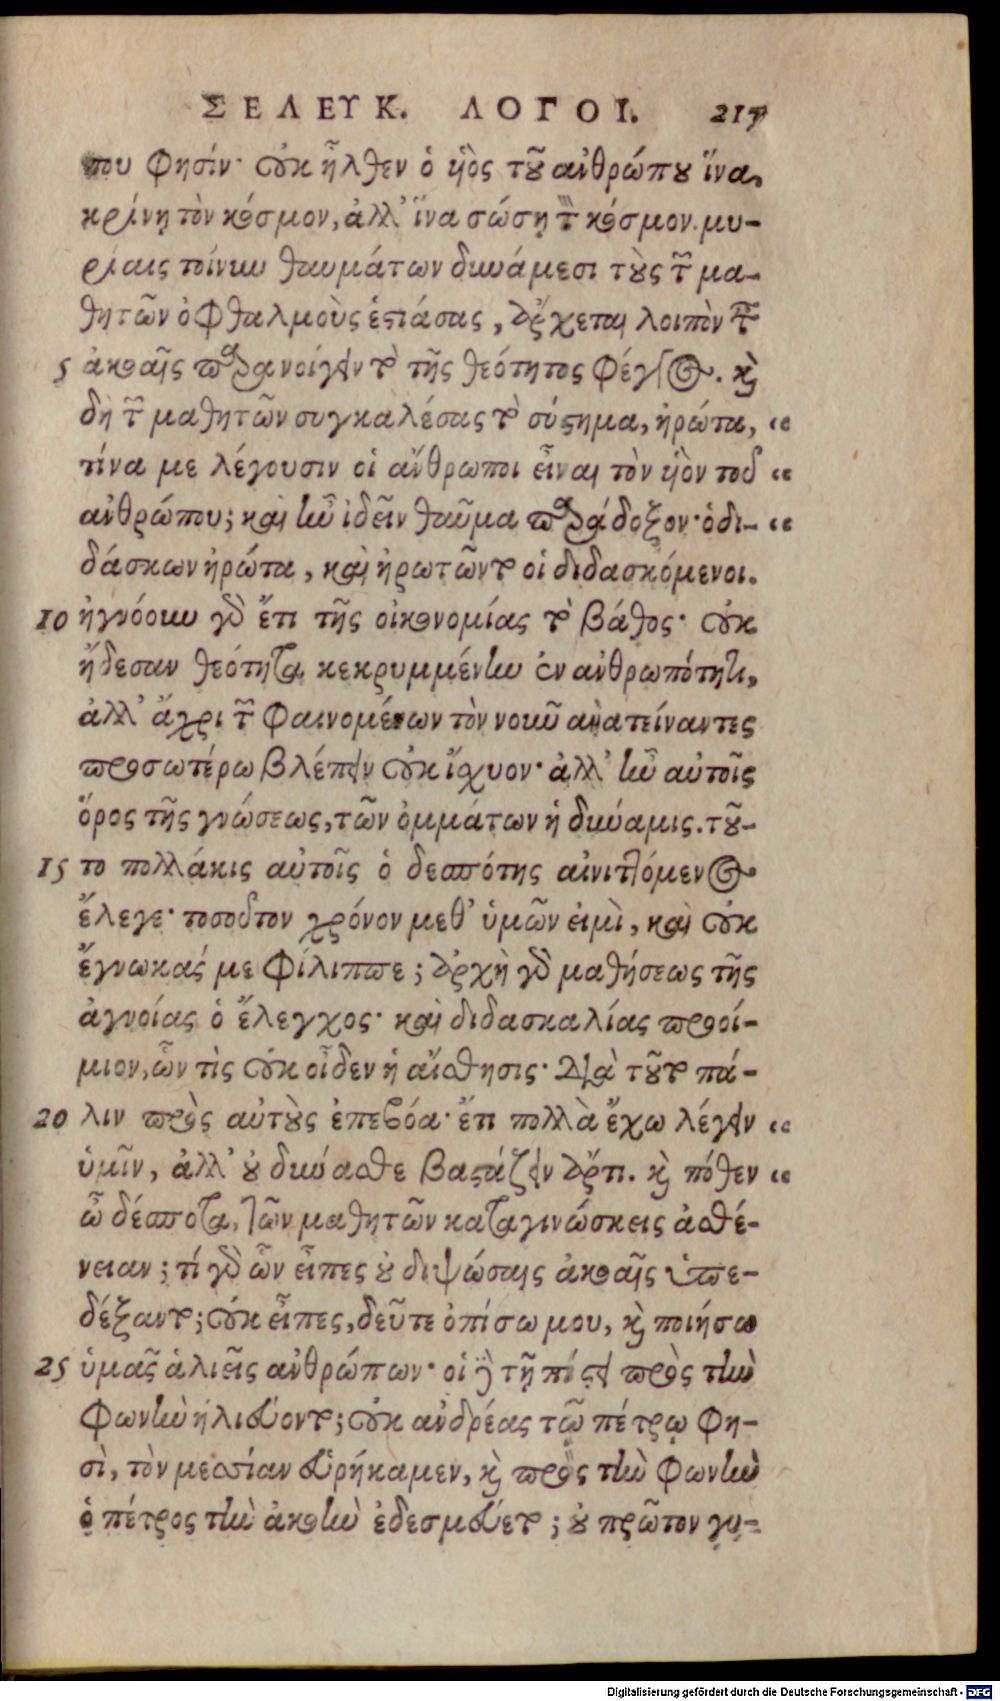 ΣΕΛΕΥΚ. ΛΟΓΟΙ. 217
που φησίν· οὐκ ἦλθεν ὁ ὑιὸς τοῦ ἀνθρώπου ἵνα
κρίνῃ τὸν κόσμον, ἀλλ' ἵνα σώσῃ τὸν κόσμον. μυ-
ρίαις τοίνυν θαυμάτων δυνάμεσι τοὺς τῶν μα-
θητῶν ὀφθαλμοὺς ἑστιάσας, ἄρχεται λοιπὸν ταῖς
5 ἀκοαῖς παρανοίγειν τὸ τῆς θεότητος φέγγος. καὶ
δὴ τῶν μαθητῶν συγκαλέσας τὸ σύστημα, ἠρώτα, “
τίνα με λέγουσιν οἱ ἄνθρωποι εἶναι τὸν ὑιὸν τοῦ “
ἀνθρώπου; καὶ ἦν ἰδεῖν θαῦμα παράδοξον· ὁ δι- “
δάσκων ἠρώτα, καὶ ἠρωτῶντο οἱ διδασκόμενοι.
10 ἠγνόουν γὰρ ἔτι τῆς οἰκονομίας τὸ βάθος· οὐκ
ᾔδεσαν θεότητα κεκρυμμένην ἐν ἀνθρωπότητι,
ἀλλ' ἄχρι τῶν φαινομένων τὸν νοῦν ἀνατείναντες
προσωτέρω βλέπειν οὐκ ἴχυον· ἀλλ' ἦν αὐτοῖς
ὅρος τῆς γνώσεως, τῶν ὀμμάτων ἡ δύναμις. τοῦ-
15 το πολλάκις αὐτοῖς ὁ δεσπότης αἰνιττόμενος
ἔλεγε· τοσοῦτον χρόνον μεθ' ὑμῶν εἰμὶ, καὶ οὐκ
ἔγνωκάς με Φίλιππε; ἀρχὴ γὰρ μαθήσεως τῆς
ἀγνοίας ὁ ἔλεγχος· καὶ διδασκαλίας προοί-
μιον, ὧν τὶς οὐκ οἶδεν ἡ αἴσθησις· Διὰ τοῦτο πά-
20 λιν πρὸς αὐτοὺς ἐπεβόα· ἔτι πολλὰ ἔχω λέγειν “
ὑμῖν, ἀλλ' οὐ δύνασθε βαστάζειν ἄρτι. καὶ πόθεν “
ὦ δέσποτα, τῶν μαθητῶν καταγινώσκεις ἀσθέ-
νειαν; τί γὰρ ὧν εἶπες οὐ διψώσαις ἀκοαῖς ὑπε-
δέξαντο; οὐκ εἶπες, δεῦτε ὀπίσω μου, καὶ ποιήσω
25 ὑμᾶς ἁλιεῖς ἀνθρώπων· οἱ δὲ τῇ πίστει πρὸς τὴν
φωνὴν ἡλιεύοντο; οὐκ ἀνδρέας τῷ πέτρῳ φη-
σὶ, τὸν μεσσίαν εὑρήκαμεν, καὶ πρὸς τὴν φωνὴν
ὁ πέτρος τὴν ἀκοὴν ἐδεσμεύετο; οὐ πρῶτον γυ-
Digitalisierung gefördert durch die Deutsche Forschungsgemeinschaft - DFG